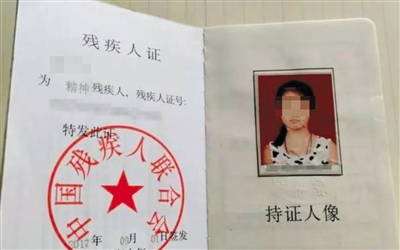 残疾人证
为
精神残疾人，残疾人证号：
特发此证
中国残疾人联合会
2017年 06月 01日签发
持证人像